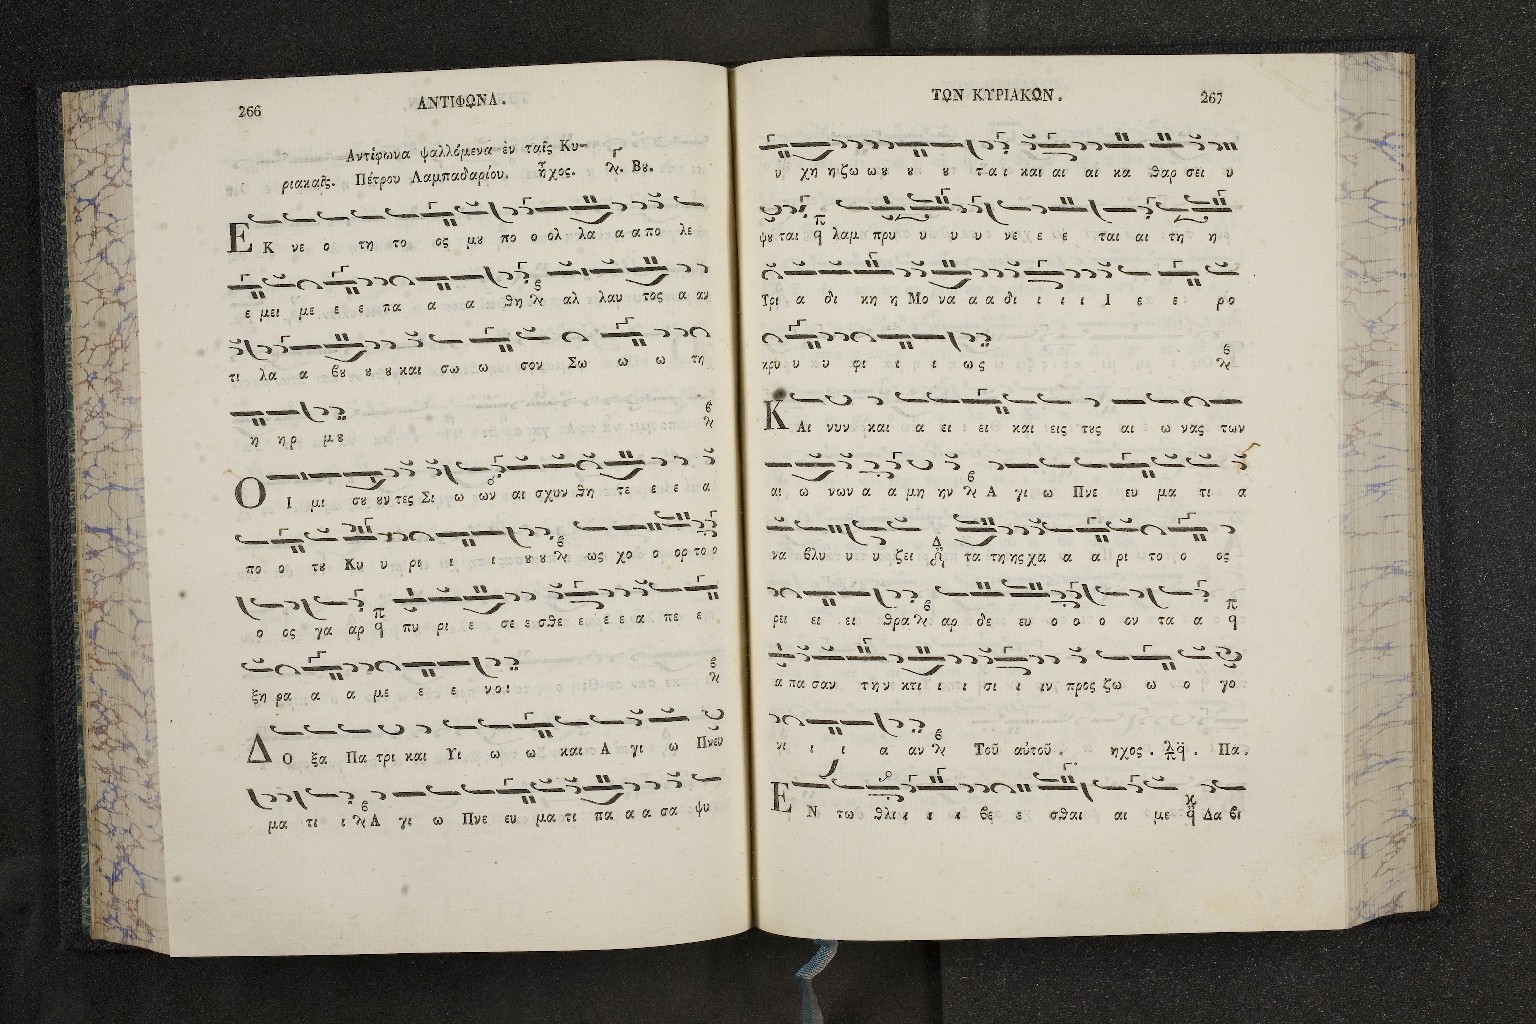 266
ΑΝΤΙΦΩΝΑ.
Αντίφωνα ψαλλόμενα ἐν ταῖς Κυ-
ριακαῖς. Πέτρου Λαμπαδαρίου. ἦχος. Βȣ.
Ε Κ νε ο τη το ος μȣ πο ο ολ λα α α πο λε
ε μει με ε ε πα α α θη αλ λαυ τος α αν
τι λα α βȣ ȣ ȣ και σω ω σον Σω ω ω τη
η ηρ μȣ
Ο Ι μι σȣ ȣν τες Σι ω ων αι σχυν θη τε ε ε α
πο ο τȣ Κυ υ ρι ι ι ȣ ȣ ως χο ο ορ το ο
ο ος γα αρ πυ ρι ε σε ε σθε ε ε ε α πε ε
ξη ρα α α με ε ε νοι
Δ Ο ξα Πα τρι και Υι ω ω και Α γι ω Πνευ
μα τι ι Α γι ω Πνε ευ μα τι πα α α σα ψυ
ΤΩΝ ΚΥΡΙΑΚΩΝ.
267
υ χη η ζω ω ȣ ȣ ȣ τ α ι και αι αι κα θαρ σει υ
ψȣ ται λαμ πρυ υ υ υ νε ε ε ται αι τη η
Τρι α δι κη η Μο να α α δι ι ι ι Ι ε ε ρο
κρυ υ υ φι ι ι ως
Κ Αι νυν και α ει ει και εις τȣς αι ω νας των
αι ω νων α α μη ην Α γι ω Πνε ευ μα τι α
να βλυ υ υ ζει τα τη ης χα α α ρι το ο ος
ρει ει ει θρα αρ δε ευ ο ο ο ον τα α
α πα σαν την κτι ι ι σι ι ιν προς ζω ω ο γο
νι ι ι α αν Τοῦ αὐτοῦ. ηχος. Πα.
Ε Ν τω θλι ι ι ι βε ε σθαι αι με Δα βι